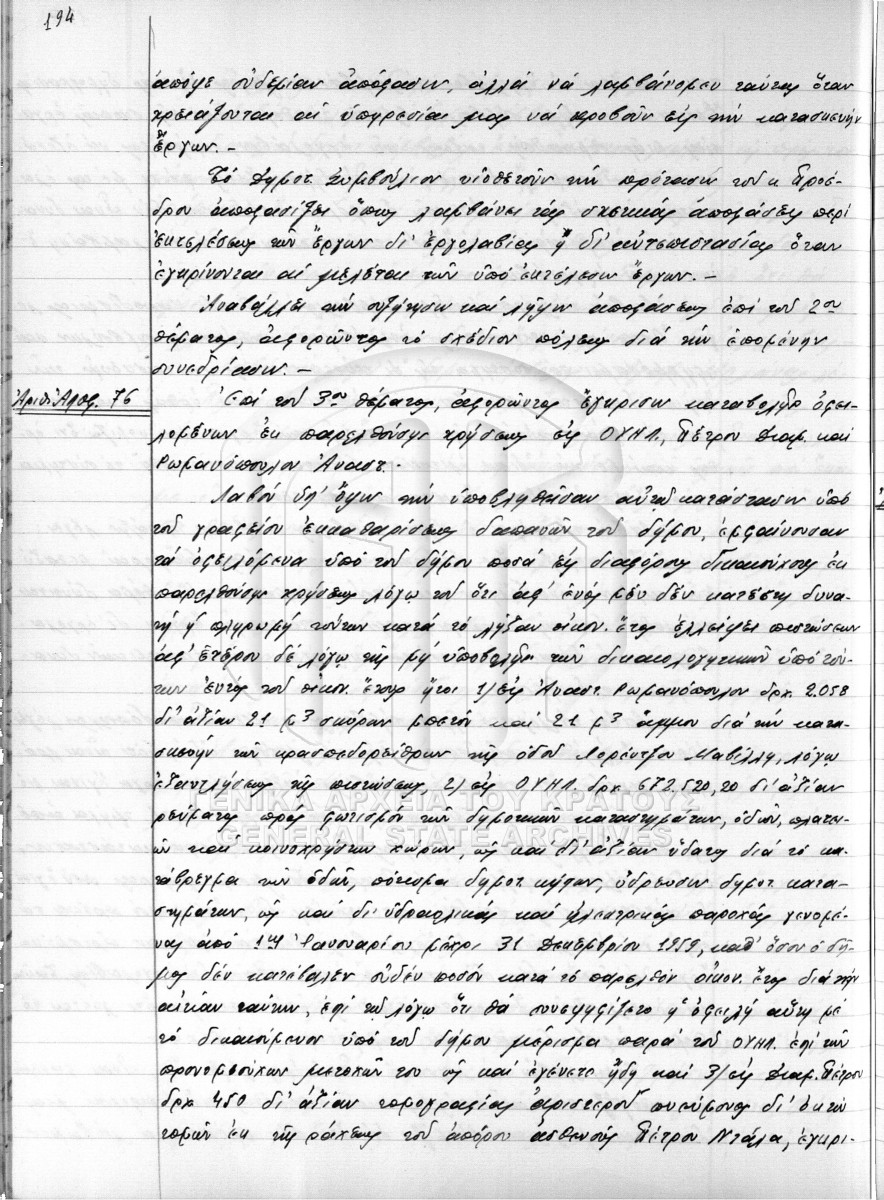 194
ἀπόψε οὐδεμίαν ἀπόφασιν, ἀλλά νά λαμβάνομεν ταύτας ὅταν
χρειάζονται αἱ ὑπηρεσίαι μας νά προβοῦν εἰς τήν κατασκευήν
ἔργων. -
Τό Δημοτ. Συμβούλιον υἱοθετοῦν τήν πρότασιν τοῦ κ. Προέ-
δρου ἀποφασίζει ὅπως λαμβάνει τάς σχετικάς ἀποφάσεις περί
ἐκτελέσεως τῶν ἔργων δι' ἐργολαβίας ἤ δι' αὐτεπιστασίας ὅταν
ἐγκρίνονται αἱ μελέται τῶν ὑπό ἐκτέλεσιν ἔργων. -
Ἀναβάλλει τήν συζήτησιν καί λῆψιν ἀποφάσεως ἐπί τοῦ 2ου
θέματος, ἀφορῶντος τό σχέδιον πόλεως διά τήν ἑπομένην
συνεδρίασιν. -
Ἀριθ. Ἀποφ. 76
Ἐπί τοῦ 3ου θέματος, ἀφορῶντος ἔγκρισιν καταβολῆς ὀφει-
λομένων ἐκ παρελθούσης χρήσεως εἰς ΟΥΗΛ, Πέτρου Διαμ. καί
Ρωμανόπουλον Ἀναστ. -
Λαβόν ὑπ' ὄψιν τήν ὑποβληθεῖσαν αὐτῷ κατάστασιν ὑπό
τοῦ γραφείου ἐκκαθαρίσεως δαπανῶν τοῦ δήμου, ἐμφαίνουσαν
τά ὀφειλόμενα ὑπό τοῦ δήμου ποσά εἰς διαφόρους δικαιούχους ἐκ
παρελθούσης χρήσεως λόγῳ τοῦ ὅτι ἀφ' ἑνός μέν δέν κατέστη δυνα-
τή ἡ πληρωμή τούτων κατά τό λῆξαν οἰκον. ἔτος ἐλλείψει πιστώσεων
ἀφ' ἑτέρου δέ λόγῳ τῆς μή ὑποβολῆς τῶν δικαιολογητικῶν ὑπό τού-
των ἐντός τοῦ οἰκον. ἔτους ἤτοι 1) εἰς Ἀναστ. Ρωμανόπουλον δρχ. 2.058
δι' ἀξίαν 21 μ3 σκύρων μπετόν καί 21 μ3 ἄμμου διά τήν κατα-
σκευήν τῶν κρασπεδορείθρων τῆς ὁδοῦ Λορέντζου Μαβίλλη, λόγῳ
ἐξαντλήσεως τῆς πιστώσεως, 2) εἰς ΟΥΗΛ. δρχ. 672.520,20 δι' ἀξίαν
ρεύματος πρός φωτισμόν τῶν δημοτικῶν καταστημάτων, ὁδῶν, πλατει-
ῶν καί κοινοχρήστων χώρων, ὡς καί δι' ἀξίαν ὕδατος διά τό κα-
τάβρεγμα τῶν ὁδῶν, πότισμα δημοτ. κήπων, ὕδρευσιν δημοτ. κατα-
στημάτων, ὡς καί δι' ὑδραυλικάς καί ἠλεκτρικάς παροχάς γενομέ-
νας ἀπό 1ης Ἰανουαρίου μέχρι 31 Δεκεμβρίου 1959, καθ' ὅσον ὁ δῆ-
μος δέν κατέβαλεν οὐδέν ποσόν κατά τό παρελθόν οἰκον. ἔτος διά τήν
αἰτίαν ταύτην, ἐπί τῷ λόγῳ ὅτι θά συνεψηφίζετο ἡ ὀφειλή αὕτη μέ
τό δικαιούμενον ὑπό τοῦ δήμου μέρισμα παρά τοῦ ΟΥΗΛ. ἐπί τῶν
προνομιούχων μετοχῶν του ὡς καί ἐγένετο ἤδη καί 3) εἰς Διαμ. Πέτρου
δρχ. 450 δι' ἀξίαν τομογραφίας ἀριστεροῦ πνεύμονος δι' ὀκτώ
τομῶν ἐκ τῆς ράχεως τοῦ ἀπόρου ἀσθενοῦς Πέτρου Ντάλα, ἐγκρί-
ΓΕΝΙΚΑ ΑΡΧΕΙΑ ΤΟΥ ΚΡΑΤΟΥΣ
GENERAL STATE ARCHIVES